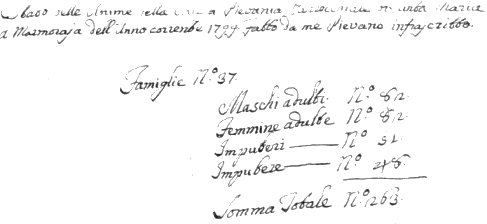 Stato delle Anime della Chiesa Pievania Parrocchiale di Santa Maria
a Marmoraja dell'Anno corrente 1794 fatto da me Pievano infrascritto.
Famiglie N.º 37.
Maschi adulti. N.º 82.
Femmine adulte N.º 82.
Impuberi N.º 51.
Impubere N.º 48.
Somma Totale N.º 263.